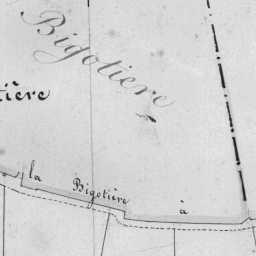 Bigotière
tière
la Bigotière à